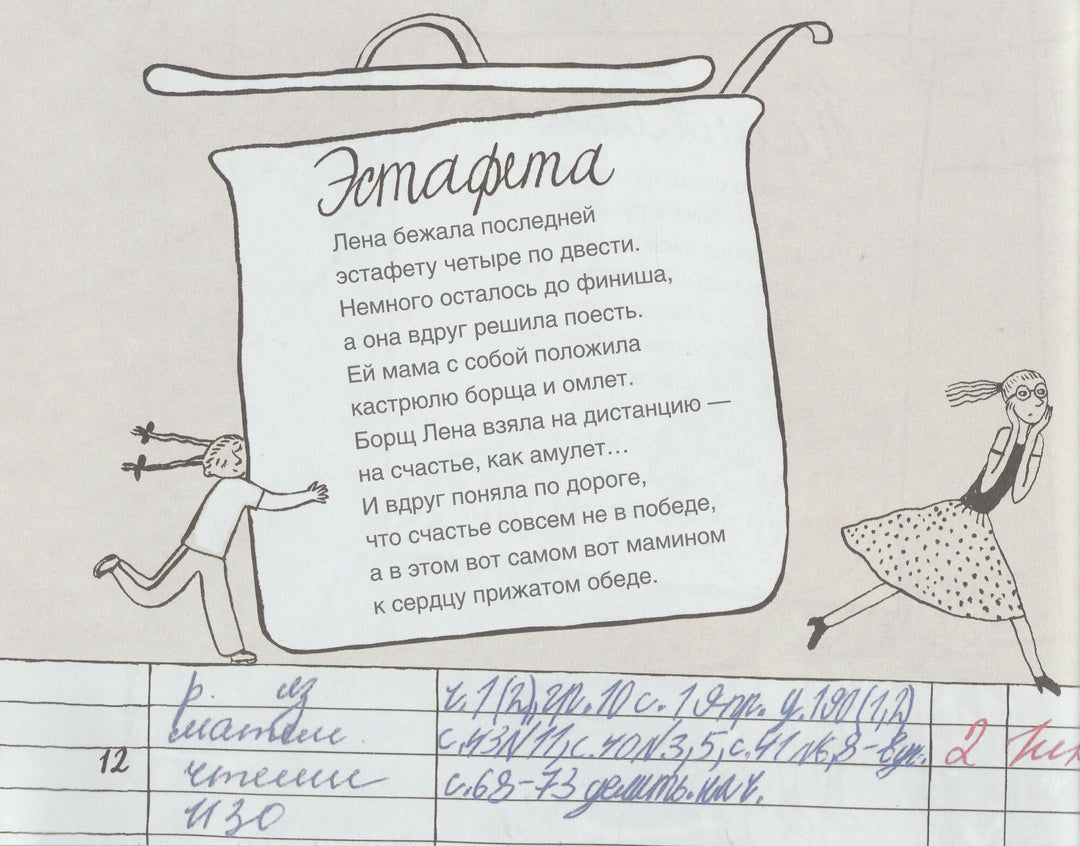 Эстафета
Лена бежала последней
эстафету четыре по двести.
Немного осталось до финиша,
а она вдруг решила поесть.
Ей мама с собой положила
кастрюлю борща и омлет.
Борщ Лена взяла на дистанцию —
на счастье, как амулет...
И вдруг поняла по дороге,
что счастье совсем не в победе,
а в этом вот самом вот мамином
к сердцу прижатом обеде.
р. яз ч.1(2), гр.10 с.19 пр. у.190(1,2)
матем. с.43 N11, с.40 N3,5, с.41 N6,8-вук. 2
12 чтение с.68-73 делить на ч.
ИЗО